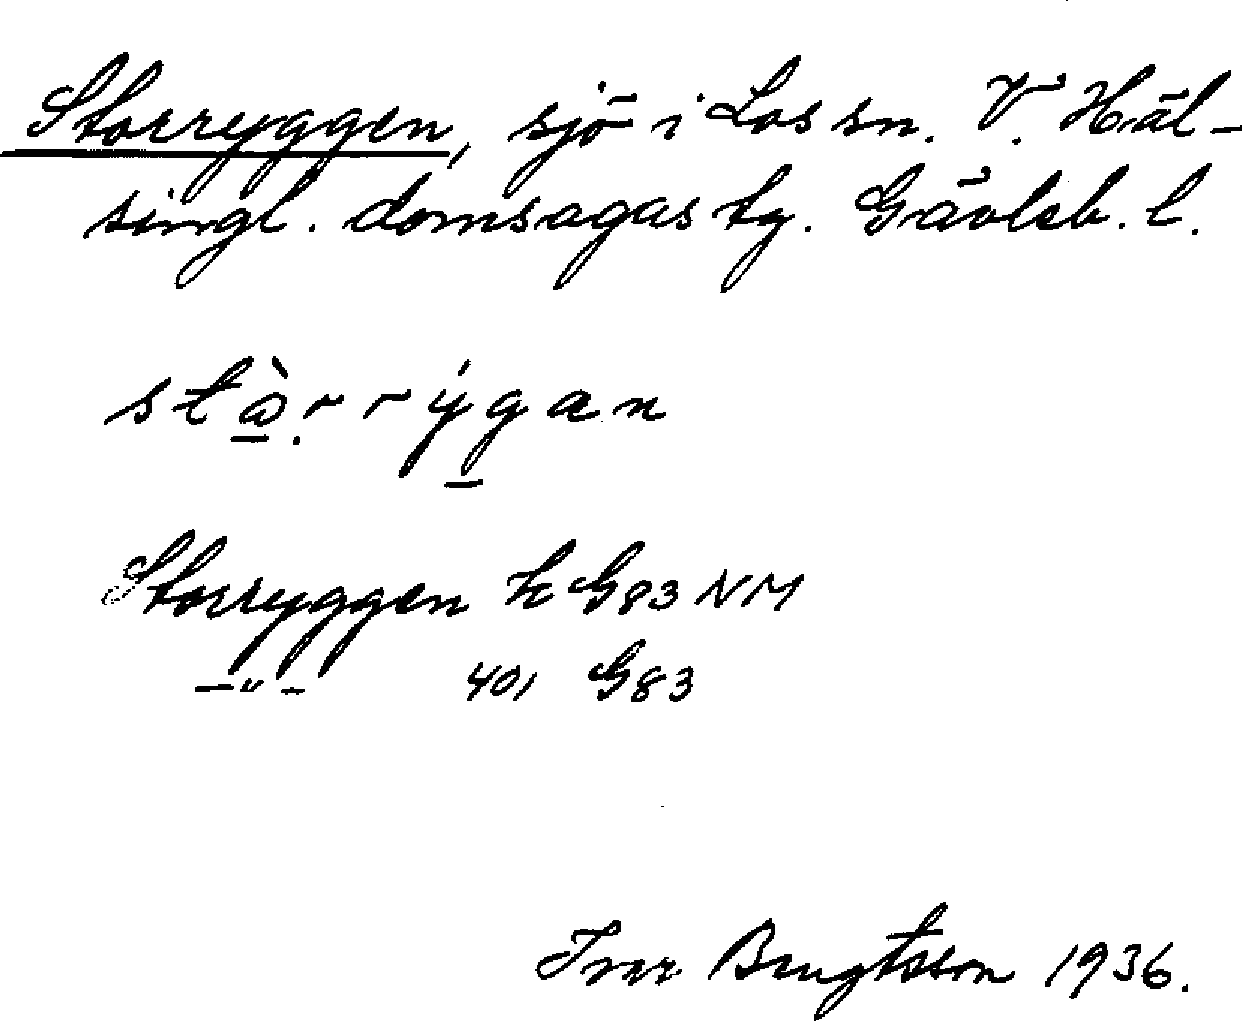 Storryggen, sjö i Los sn. V. Häl-
singl. domsagas tg. Gävleb. l.
stὰ̱ṛrý̱gan
Storryggen k G83 NM
—"— 401 G83
Ivar Bengtsson 1936.